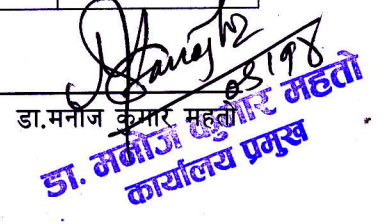 डा.मनोज कुमार महतो
डा. मनोज कुमार महतो
कार्यालय प्रमुख